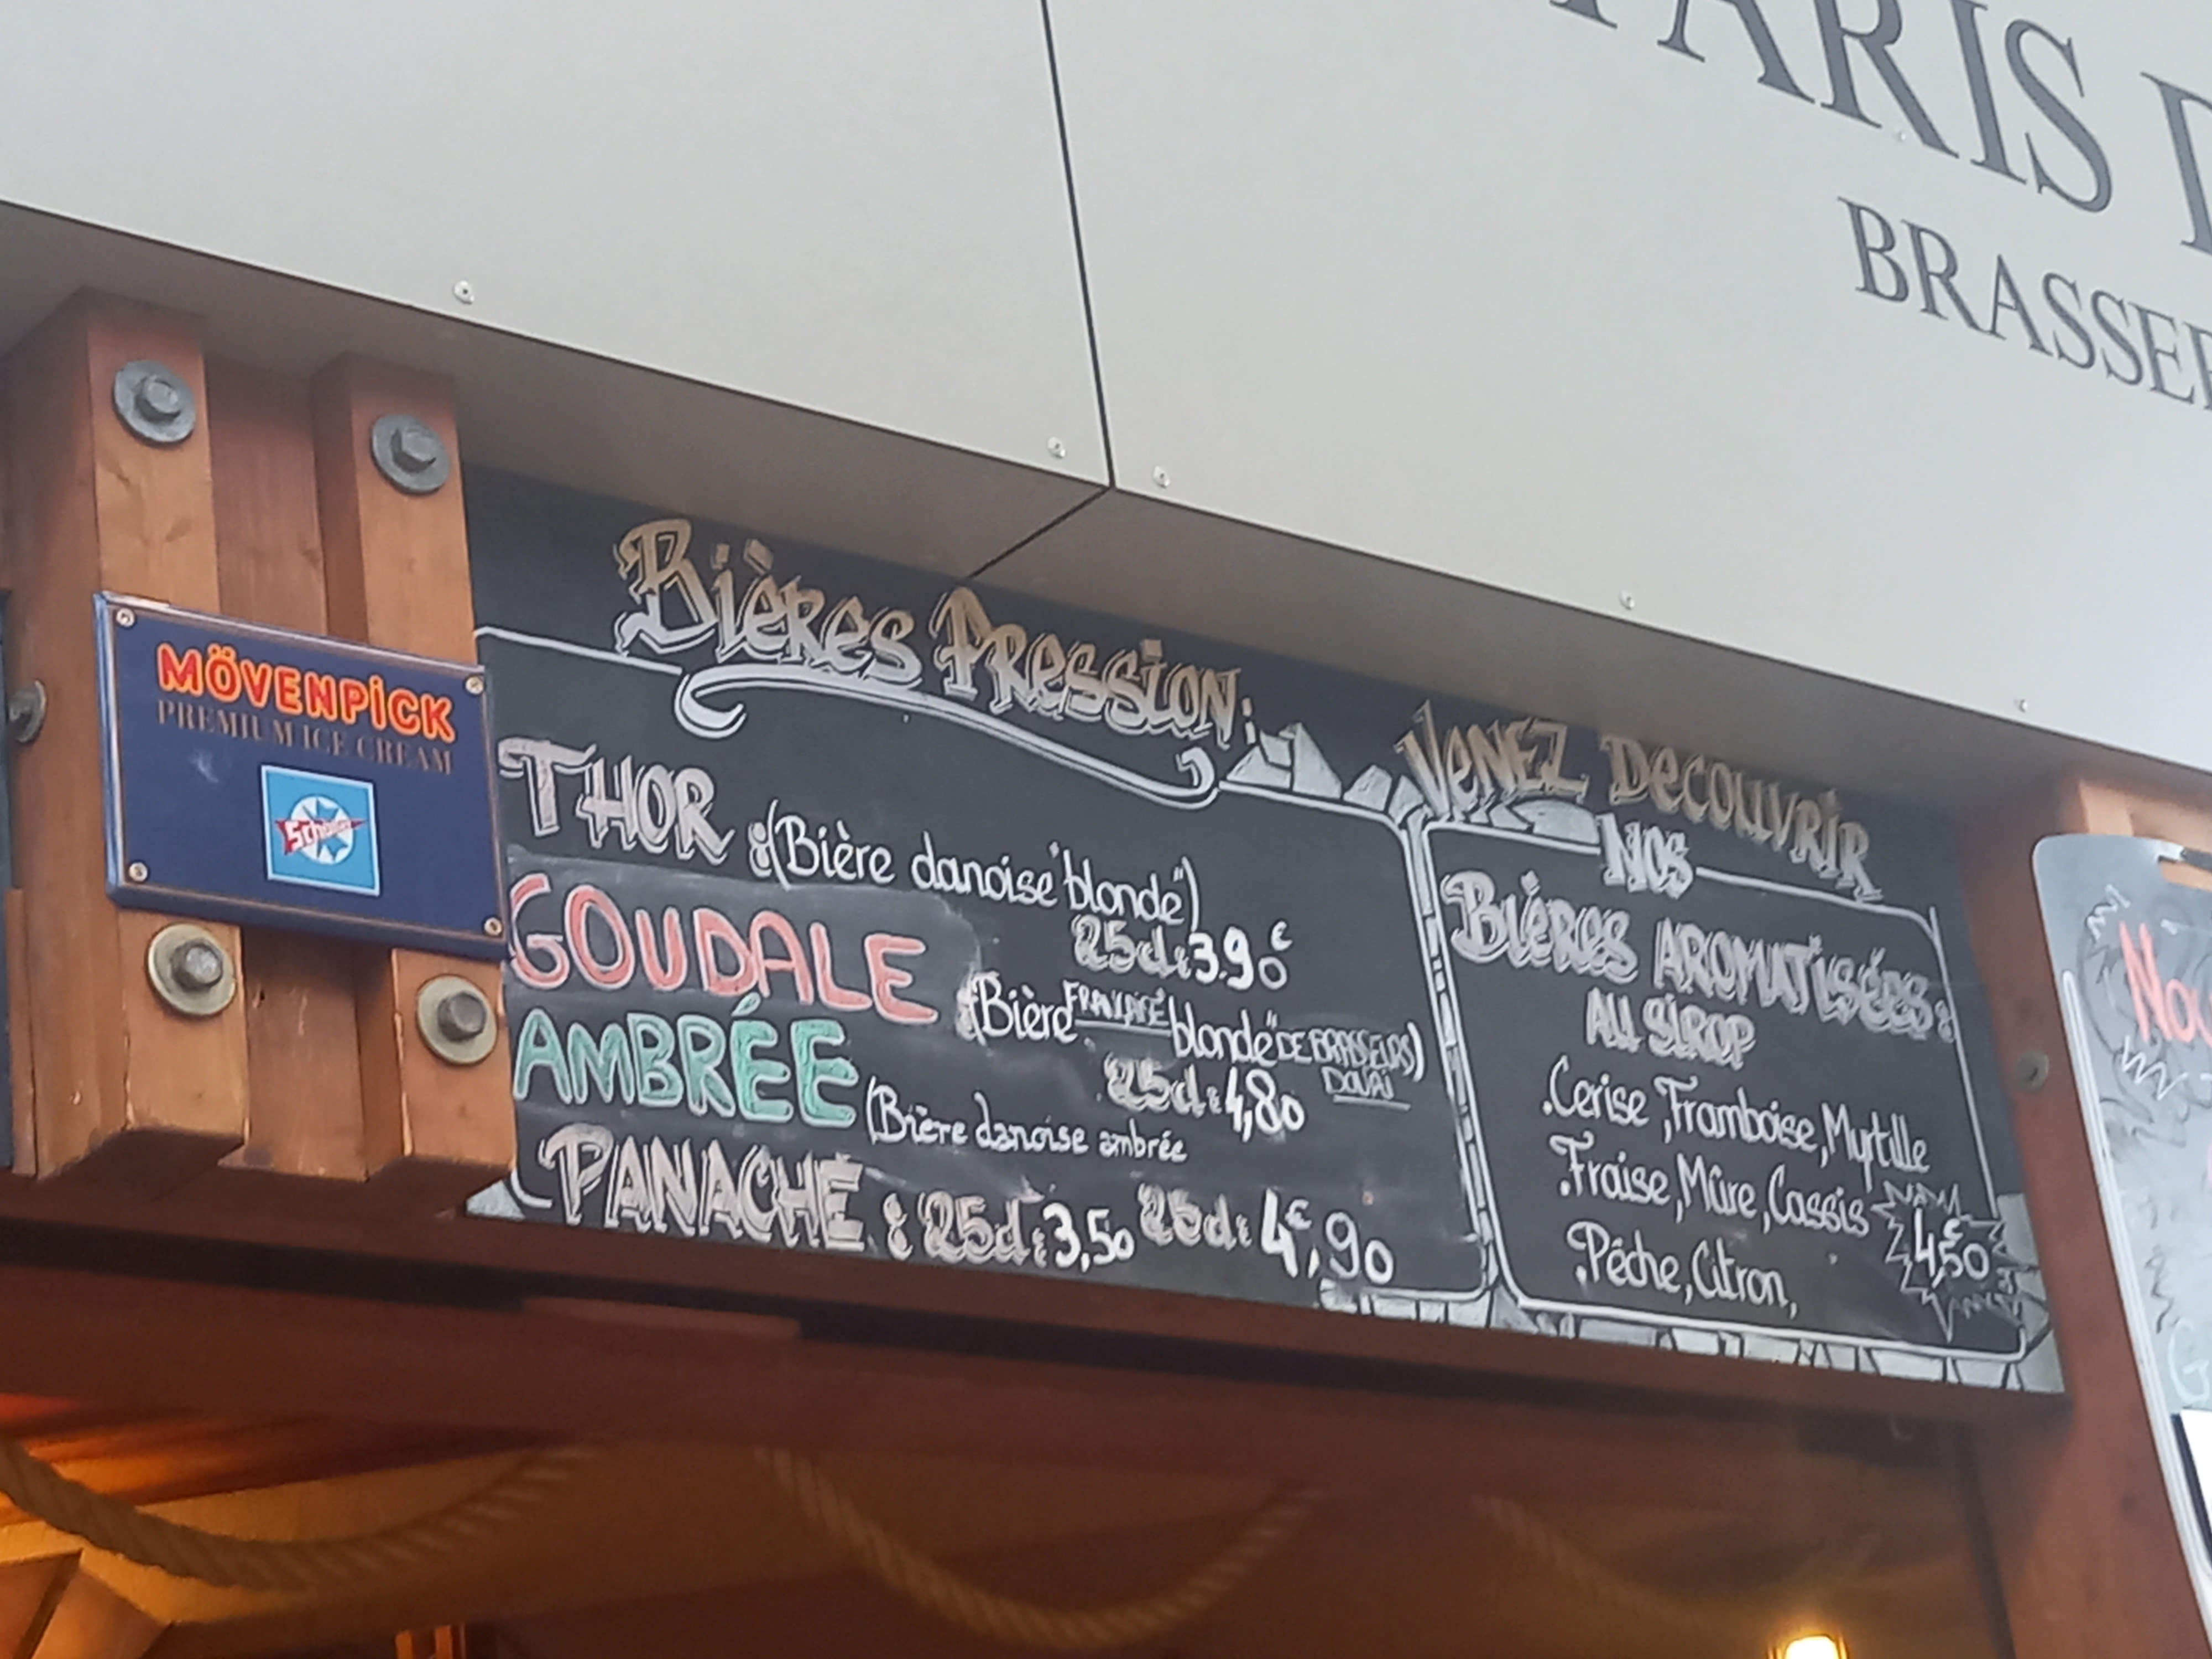 PARIS
BRASSER
MÖVENPICK
PREMIUM ICE CREAM
Schöller
Bières Pression:
THOR :(Bière danoise "blonde")
25cl:3.90€
GOUDALE
(Bière FRANÇAISE blonde" DE BRASSEURS)
DOUAI
25cl:4,80
AMBRÉE
(Bière danoise ambrée
PANACHE : 25cl:3,50 25cl: 4€,90
VENEZ DECOUVRIR
NOS
BIÈRES AROMATISÉES:
AU SIROP
.Cerise,Framboise,Myrtille
.Fraise,Mûre,Cassis
4,50€
.Pêche,Citron,